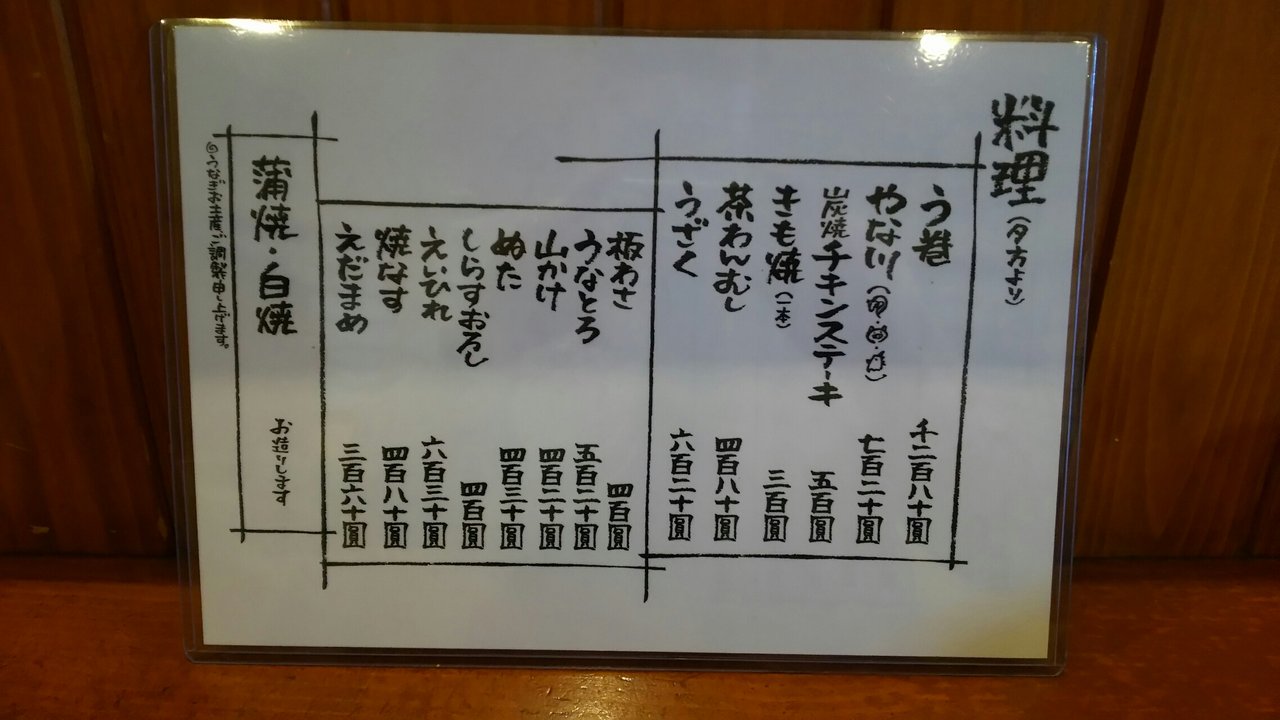 料理(夕方より)
う巻 千二百八十圓
やな川 七百二十圓
炭焼チキンステーキ 五百圓
きも焼(一本) 三百圓
茶わんむし 四百八十圓
うざく 六百二十圓
板わさ 四百圓
うなとろ 五百二十圓
山かけ 四百二十圓
ぬた 四百三十圓
しらすおろし 四百圓
えいひれ 六百三十圓
焼なす 四百八十圓
えだまめ 三百六十圓
蒲焼・白焼 お造りします
◎うなぎお土産ご調製申し上げます。